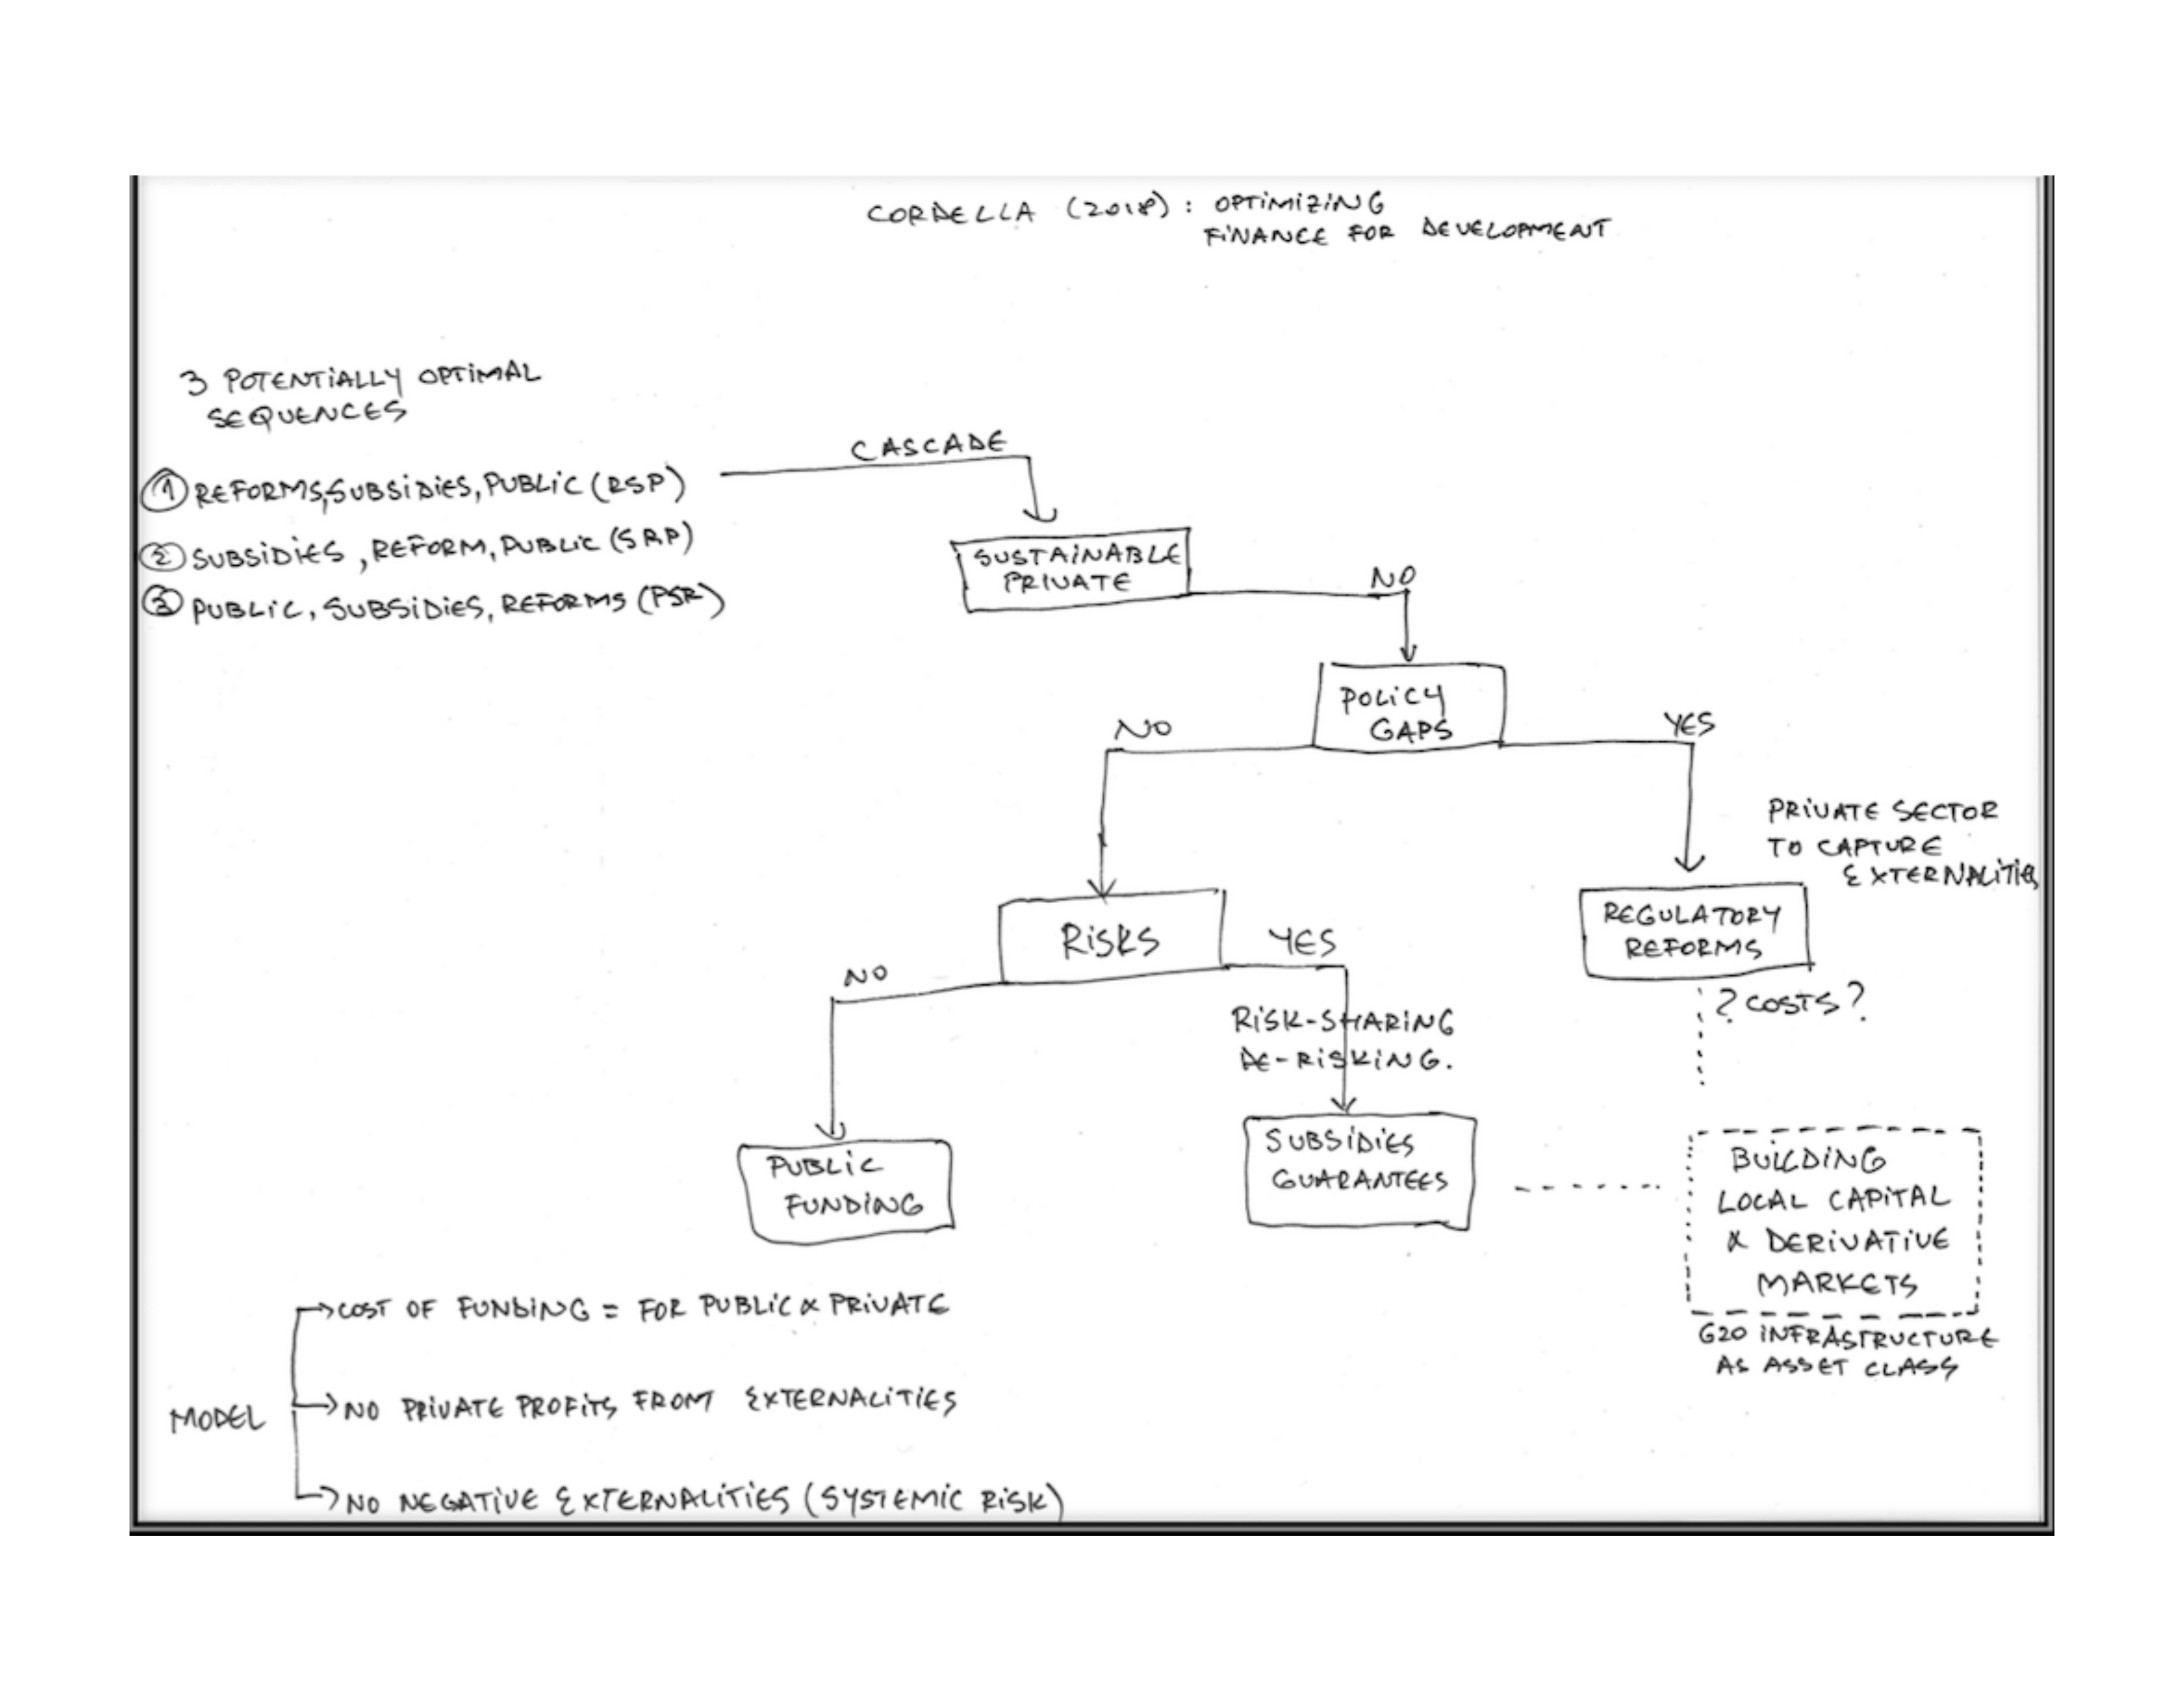 CORDELLA (2018): OPTIMIZING
FINANCE FOR DEVELOPMENT
3 POTENTIALLY OPTIMAL
SEQUENCES
① REFORMS, SUBSIDIES, PUBLIC (RSP)
② SUBSIDIES, REFORM, PUBLIC (SRP)
③ PUBLIC, SUBSIDIES, REFORMS (PSR)
CASCADE
SUSTAINABLE
PRIVATE
NO
POLICY
GAPS
NO
YES
PRIVATE SECTOR
TO CAPTURE
EXTERNALITIES
REGULATORY
REFORMS
? COSTS?
RISKS
YES
NO
RISK-SHARING
DE-RISKING.
PUBLIC
FUNDING
SUBSIDIES
GUARANTEES
BUILDING
LOCAL CAPITAL
& DERIVATIVE
MARKETS
G20 INFRASTRUCTURE
AS ASSET CLASS
MODEL
COST OF FUNDING = FOR PUBLIC & PRIVATE
NO PRIVATE PROFITS FROM EXTERNALITIES
NO NEGATIVE EXTERNALITIES (SYSTEMIC RISK)